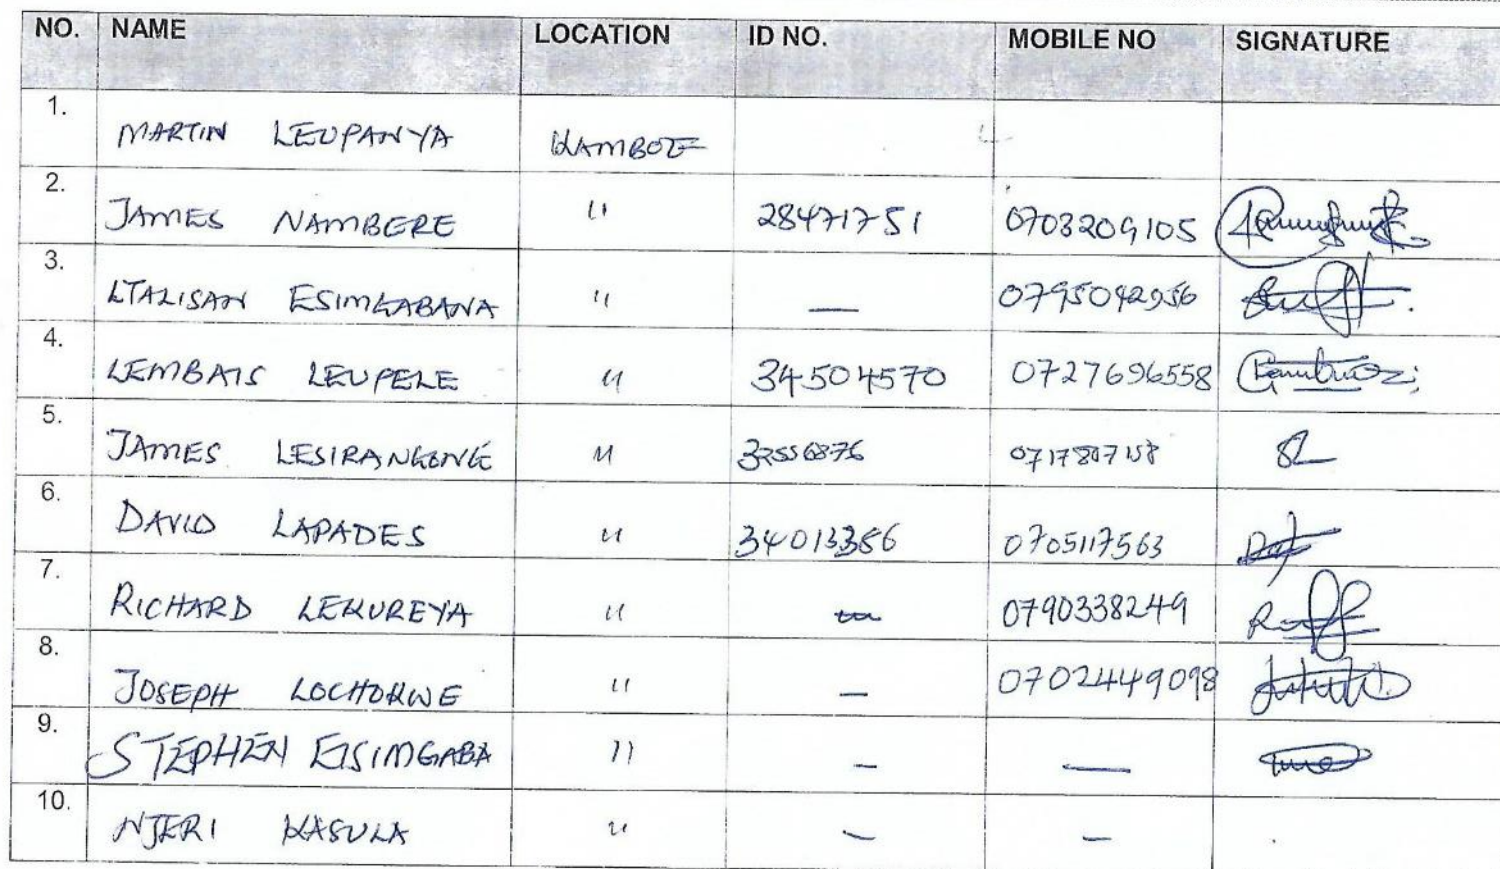 NO. NAME LOCATION ID NO. MOBILE NO SIGNATURE
1. MARTIN LEUPANYA KAMBOE
2. JAMES NAMBERE " 28471751 0703209105
3. LTALISAN ESIMGABANA " — 0795042956
4. LEMBAIS LEUPELE " 34504570 0727696558
5. JAMES LESIRANGONGE "
6. DAVID LAPADES " 34013356 0705117563
7. RICHARD LEKUREYA " — 0790338249
8. JOSEPH LOCHORWE " — 0702449098
9. STEPHEN EISIMGABA " — —
10. NJERI KASULA " — —